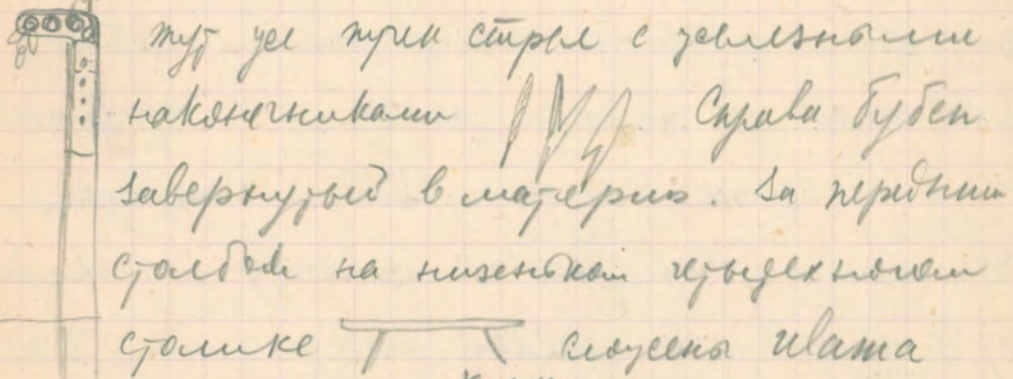 тут же пучек стрел с железными
наконечниками Справа бубен
завернутый в материю. За передним
столбом на низеньком четырехногом
столике сложены